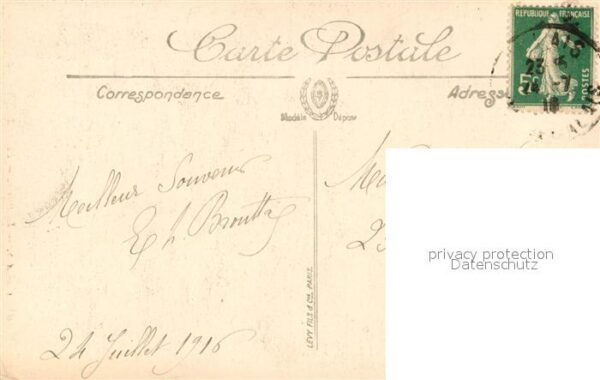 Carte Postale
RÉPUBLIQUE FRANÇAISE
5c
POSTES
Correspondance
Adresse
Modèle Déposé
Meilleur Souvenir
24 Juillet 1916
LEVY FILS & Cie PARIS
privacy protection
Datenschutz